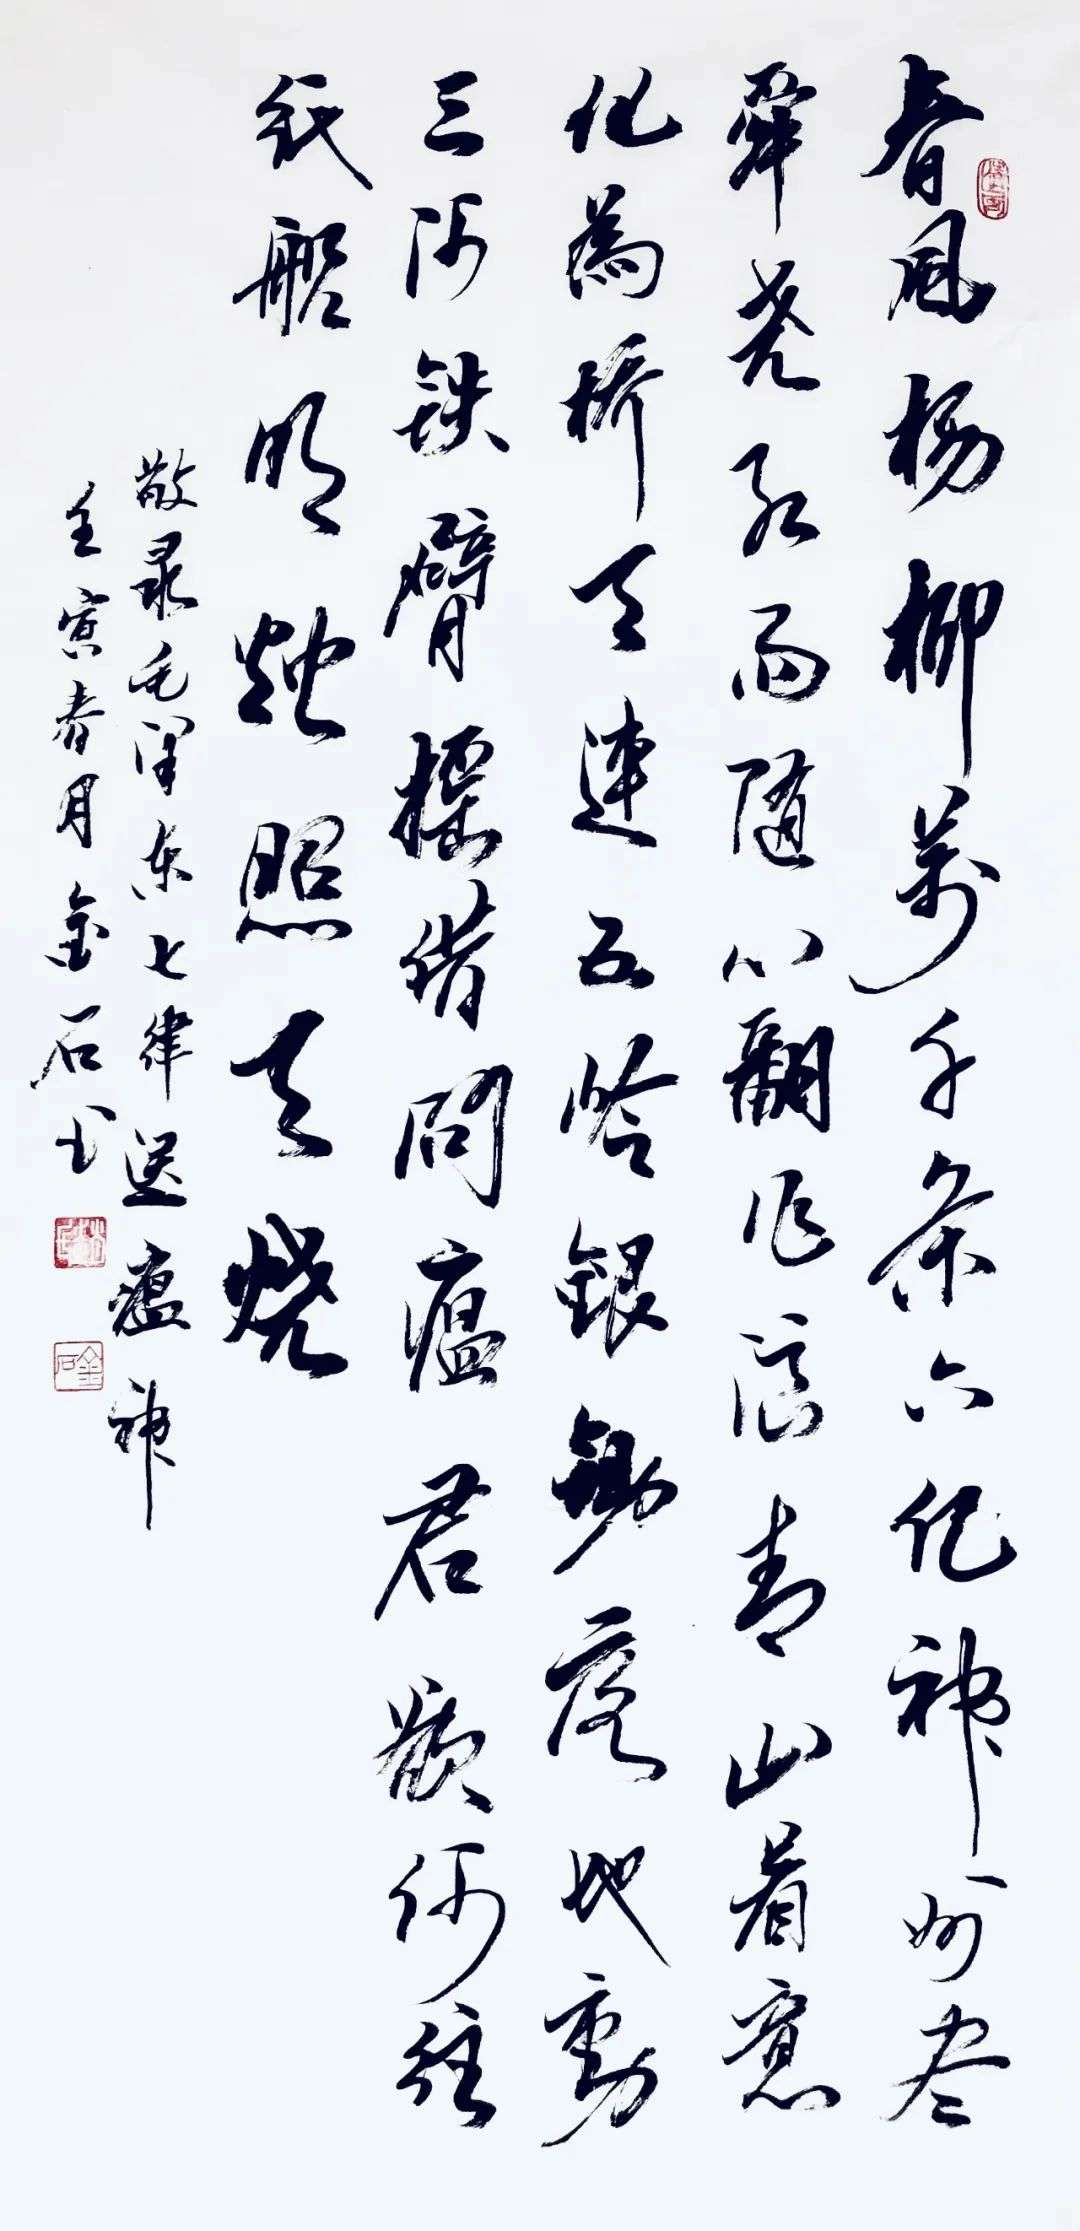 春风杨柳万千条六亿神州尽
舜尧红雨随心翻作浪青山着意
化为桥天连五岭银锄落地動
三河铁臂摇借问瘟君欲何往
纸船明烛照天烧
敬录毛泽东七律送瘟神
壬寅春月金石书
金石